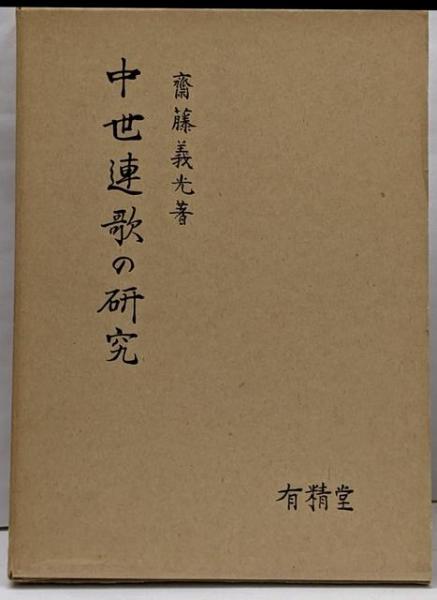 齋藤義光著
中世連歌の研究
有精堂